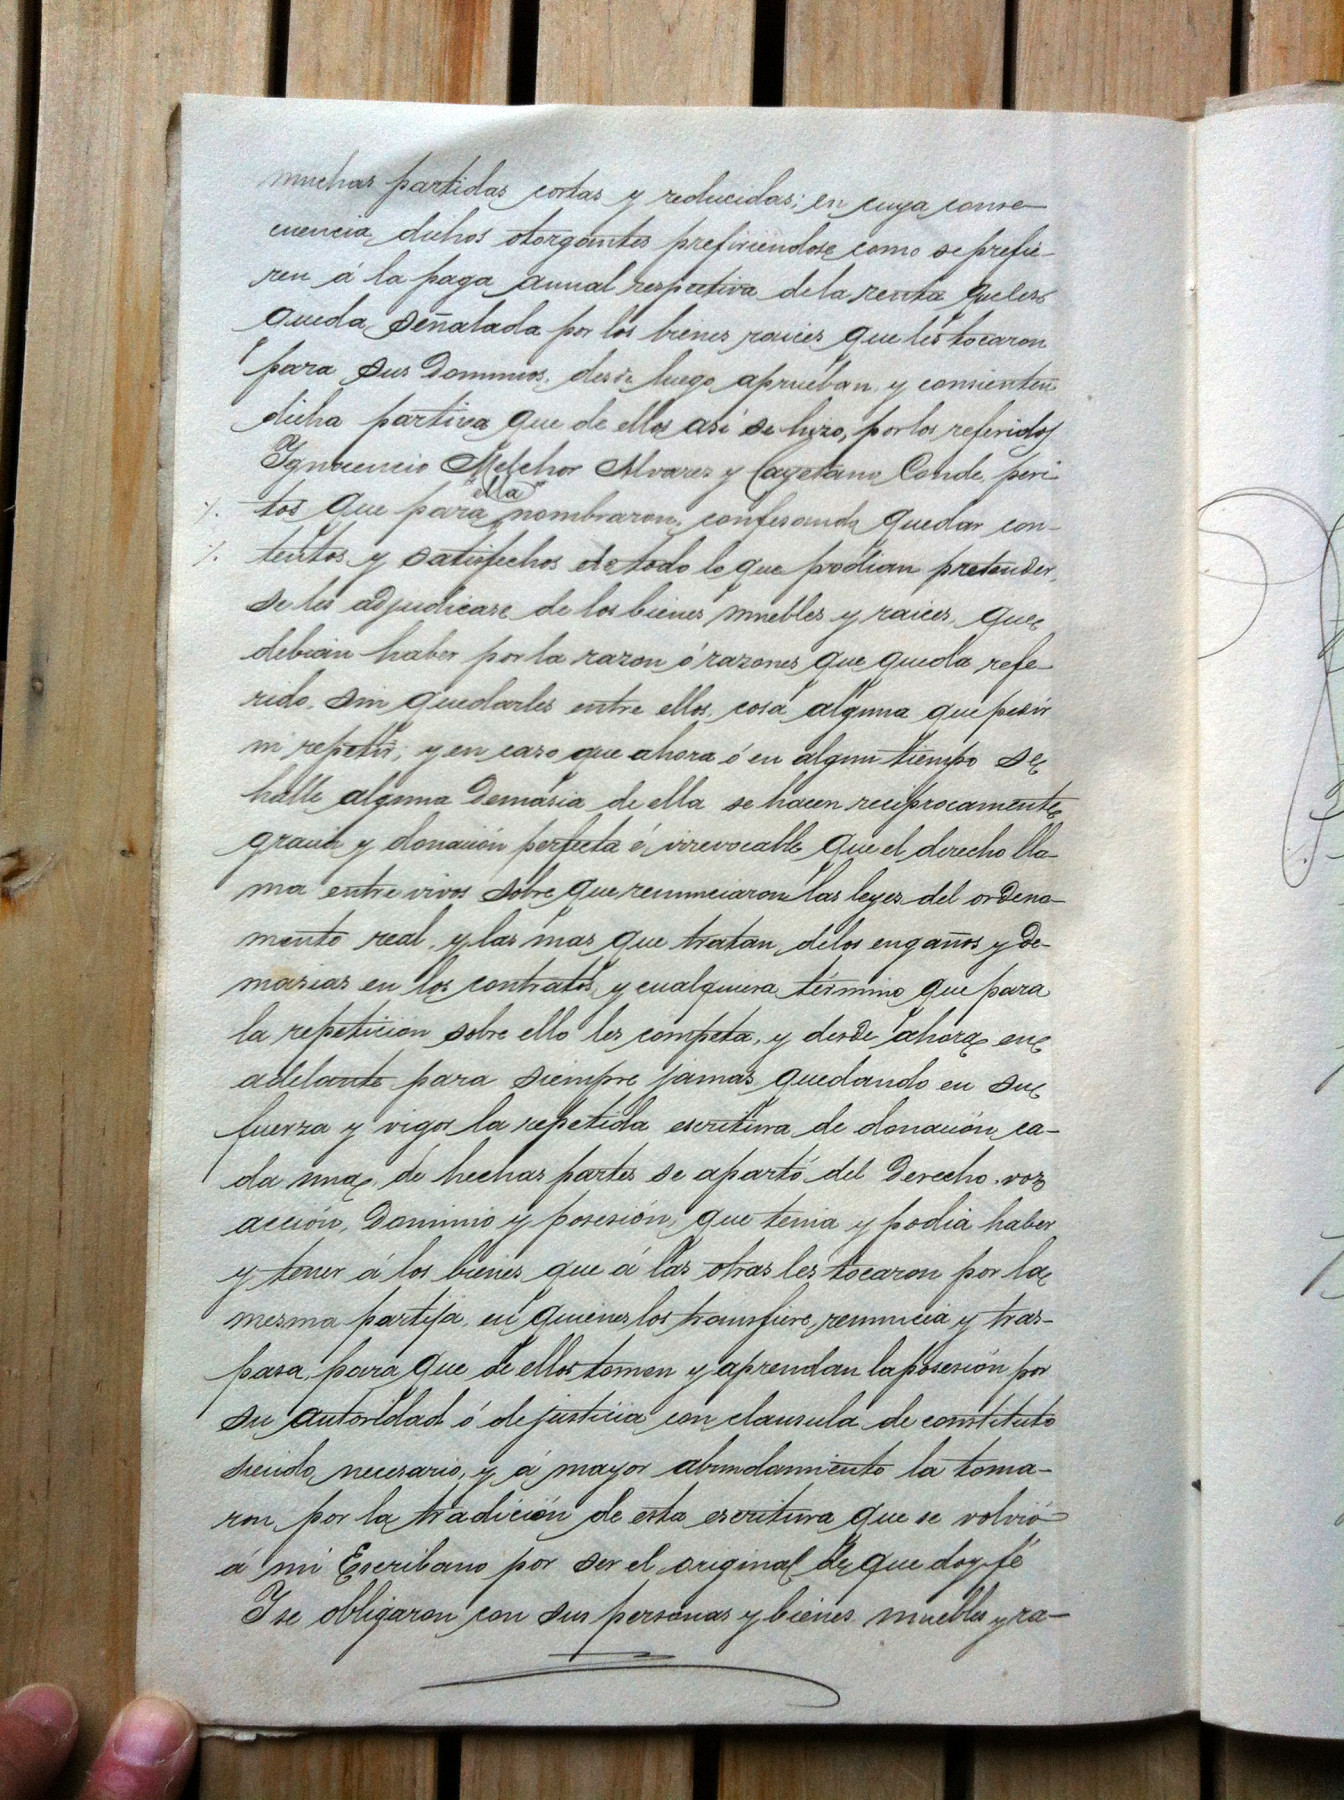 muchas partidas cortas y reducidas; en cuya conse-
cuencia, dichos otorgantes prefiriendose como se prefie-
ren á la paga annal respectiva de la renta que les
queda señalada por los bienes raices que les tocaron
para sus Dominios, desde luego aprueban y consienten
dicha partixa que de ellos asi se hizo, por los referidos
Ygnocencio Melchor Alvarez y Cayetano Conde, peri-
"ella"
·/. tos que para nombraron, confesando quedar con-
·/. tentos y satisfechos de todo lo que podian pretender,
se les adjudicase de los bienes muebles y raices, que
debian haber por la razon ó razones que queda refe-
rido, sin quedarles entre ellos, cosa alguna que pedir
ni repetir; y en caso que ahora ó en algun tiempo se
halle alguna Demasia de ella se hacen reciprocamente
gracia y donación perfecta é irrevocable que el derecho lla-
ma entre vivos sobre que renunciaron las leyes del ordena-
mento real, y las mas que tratan de los engaños y de-
masias en los contratos, y cualquiera término que para
la repetición sobre ello les competa, y desde ahora en
adelante para siempre jamas, quedando en su
fuerza y vigor la repetida escritura de donación, ca-
da una, de hechas partes se apartó del Derecho, voz
acción, Dominio y posesión, que tenia y podia haber
y tener á los bienes que á las otras les tocaron por la
mesma partija, en quienes los transfiere, renuncia y tras-
pasa, para que de ellos tomen y aprendan la posesión por
su autoridad ó de justicia con clausula de constituto
siendo necesario, y á mayor abundamiento la toma-
ron, por la tradición de esta escritura que se volvió
á mi Escribano por ser el original de que doy fé
Y se obligaron con sus personas y bienes muebles y ra-